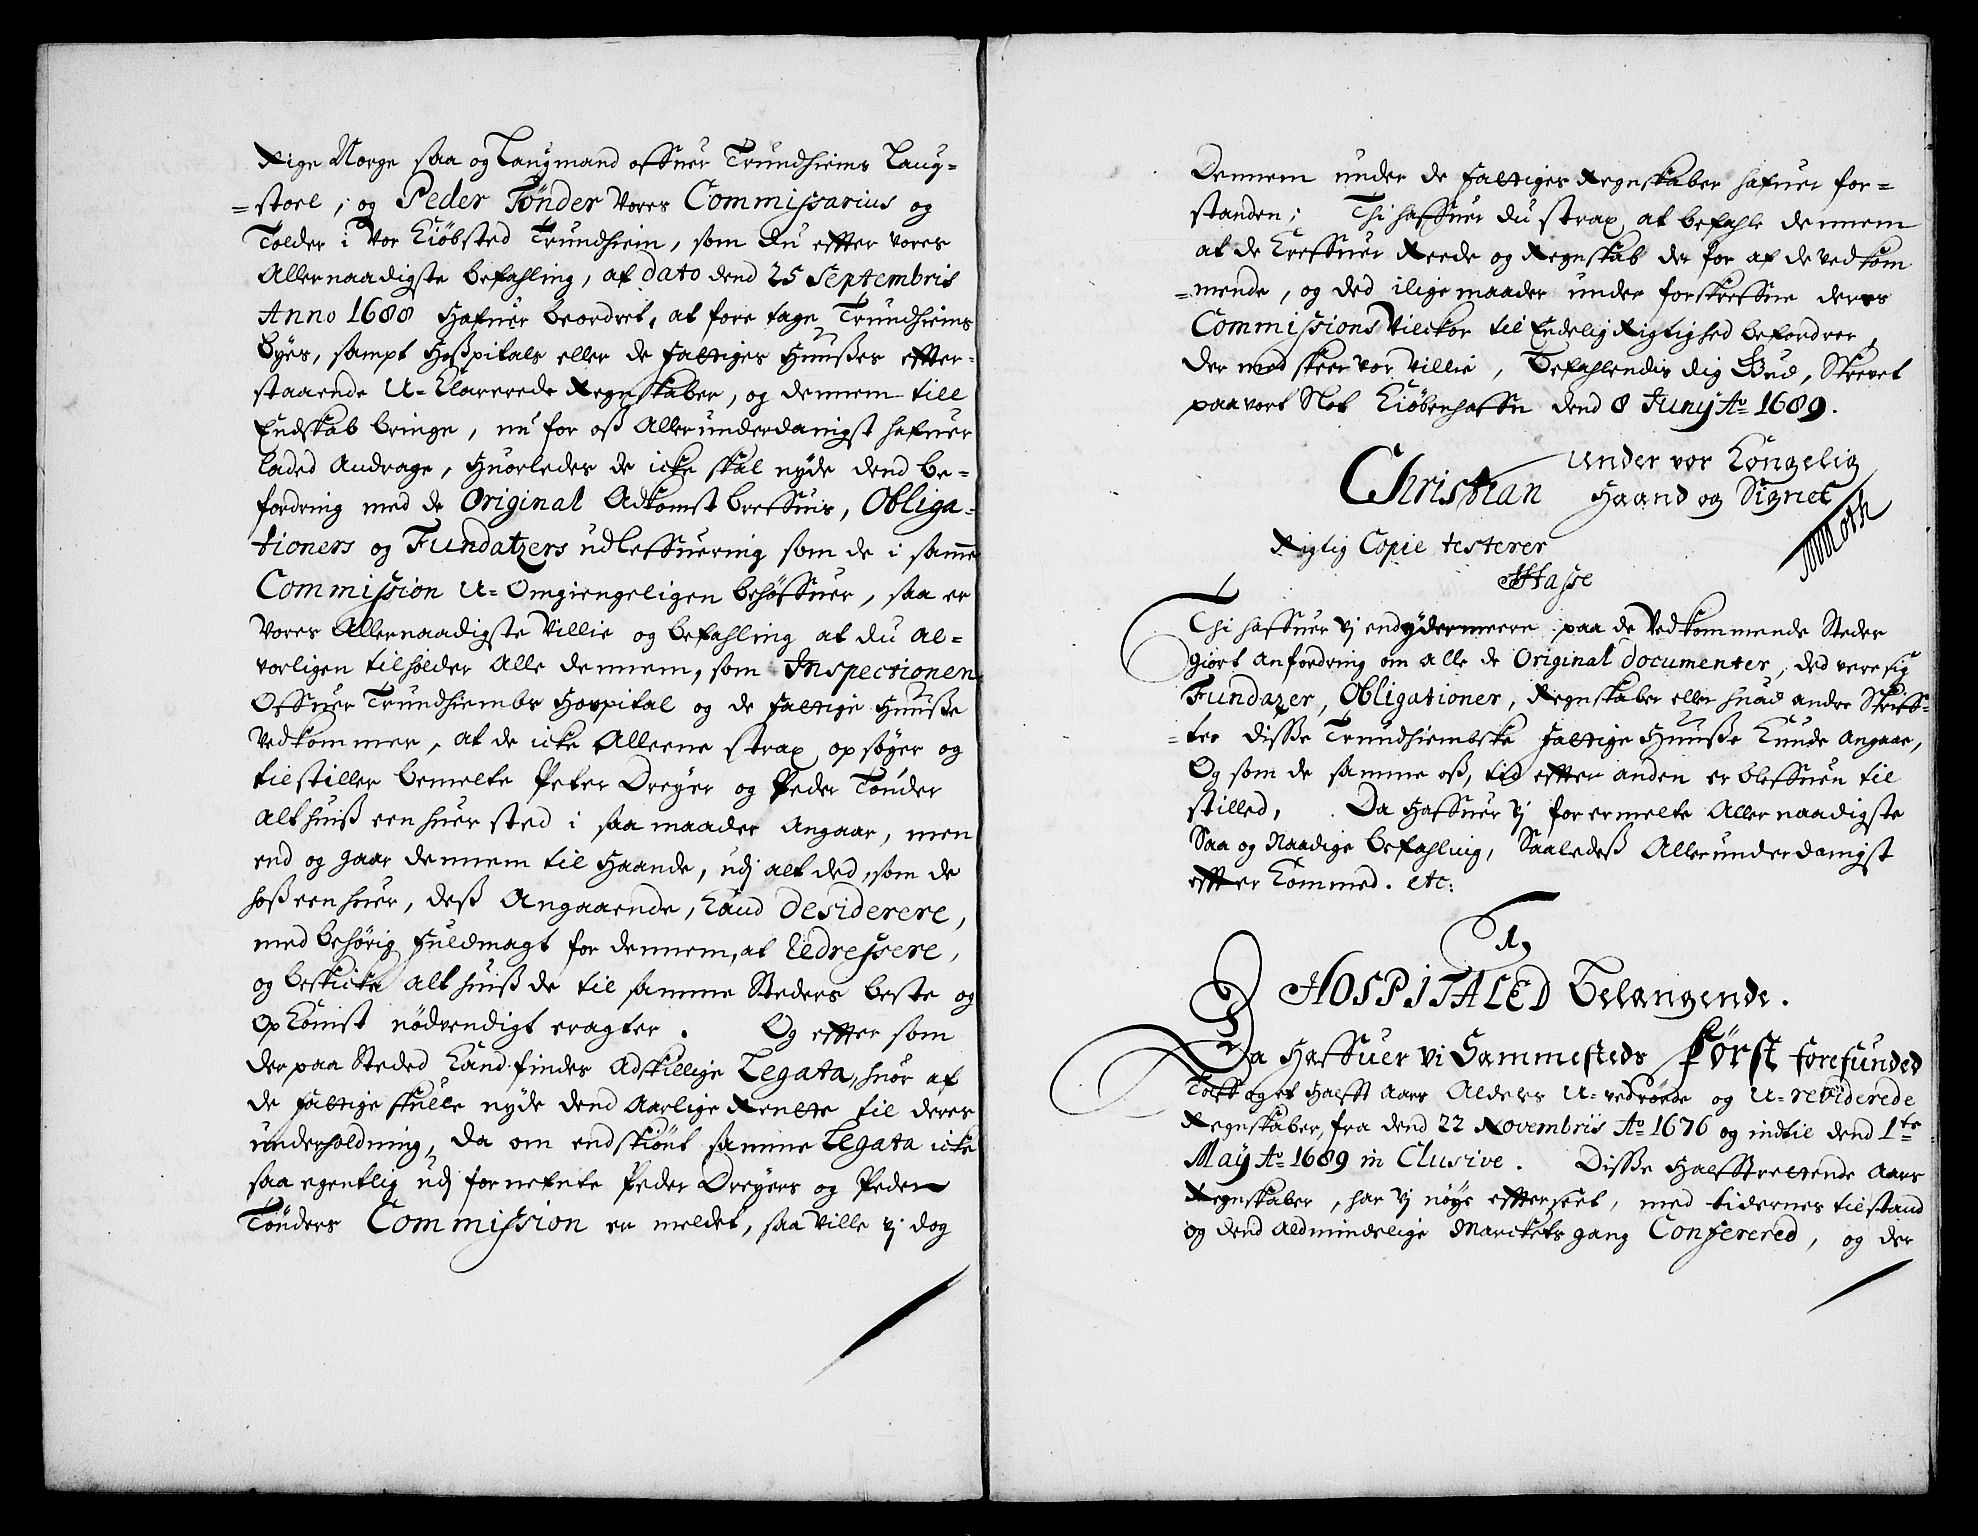 Rige Norge saa og Laugmand offuer Trundhiems Laug-
=stoel, og Peder Tønder Vores Commissarius og
Tolder i Vor Kiøbsted Trundhiem, som du effter vores
Allernaadigste befahling, af dato dend 25 Septembris
Anno 1688 hafuer beordret, at fore tage Trundhiems
byes, sampt Hoßpitals eller de fattiges Huußes effter-
staaende U-Klarerede Regnskaber, og dennem till
Endskab bringe, nu for oß Allerunderdanigst hafuer
laded Andrage, huorledes de icke skal nyde dend be-
fordring med de Original Adkomst breffuis, Obliga-
tioners og Fundatzers udleffuering som de i samme
Commission U-Omgiengeligen behøffuer, saa er
Vores Allernaadigste Villie og befahling at du al-
vorligen tilholder Alle dennem, som Inspectionen
Offuer Trundhiembs Hospital og de fattige Huuße
Vedkommer, at de icke Alleene strax opsøger og
tilstiller bemelte Peter Dreyer og Peder Tønder
Alt huiß een huer sted i saa maader Angaar, men
end og gaar dennem til Haande, udj alt ded, som de
hoß een huer, deß Angaaende, Kand desiderere,
med behørig fuldmagt for dennem, at Redressere,
og beskicke alt huiß de til samme Steders beste og
OpKomst nødvendigt eragter. Og effter som
der paa Steded Kand findes Adskillige Legata, huor af
de fattige skulle nyde dend Aarlige Rentte til deres
underholdning, da om endskiønt samme Legata icke
saa egentlig udj fornefnte Peder Dreyers og Peder
Tønders Commission er meldet, saa Ville vj dog
Dennem under de fattiges Regnskaber hafuer for=
standen; Thi haffuer du strax at befahle dennem
at de Kreffuer Reede og Regnskab der for af de vedkom
=mende, og ded ilige maader under forskreffne deres
Commissions Vilckor til Endelig Rigtighed befordrer,
der med skeer vor Villie, Befahlendis dig Gud, Skrevet
paa vort Slot Kiøbenhaffn dend 8 Junÿ Ao 1689.
Under vor Kongelig
Christian Haand og Signet
MMoth
Rigtig Copie testerer
Hasse
Thi haffuer vj end ydermeere paa de Vedkommende Steder
giort anfordring om alle de Original documenter, ded vere sig
Fundazer, Obligationer, Regnskaber eller huad andre Skriff-
=ter disse Trundhiembske fattige Huuße Kunde Angaae,
Og som de samme oß, tid effter anden er bleffuen til
stilled, Da haffuer vj for ermelte Aller naadigste
Saa og Naadige befahling, Saaledeß Allerunderdanigst
effter Kommed. etc:
1,
HOSPITALED Belangende.
Da Haffuer vi Sammesteds Først forefunded
Tolff og et halfft Aars Alders U-rediede og U-reviderede
Regnskaber, fra dend 22 Novembris Ao 1676 og indtil dend 1te
May Ao 1689 in Clusive. Disse halfftrettende Aars
Regnskaber, har vj nøye effterseet, med tidernes tilstand
og dend Aldmindelige Marckets gang Confererede, og der